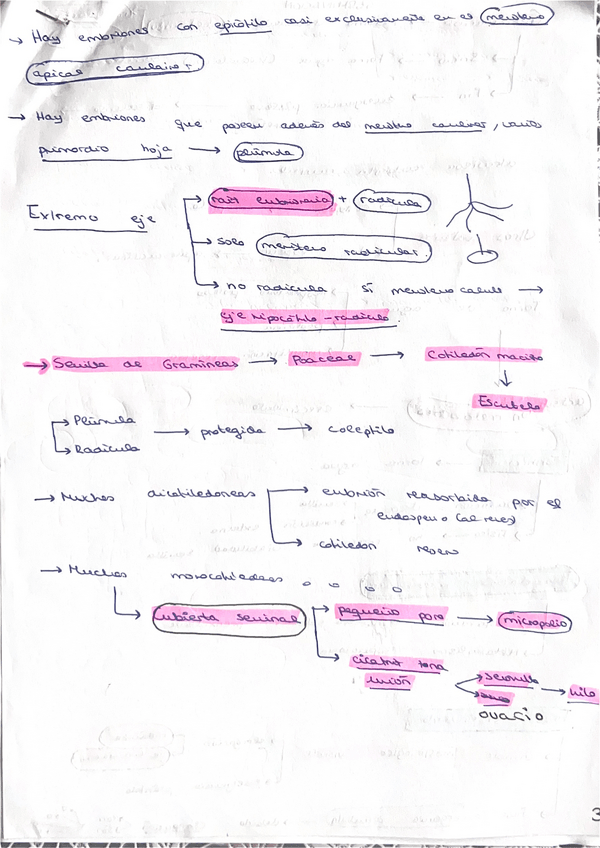 → Hay embriones con epicótilo casi exclusivamente en el meristemo
apical caulinar
→ Hay embriones que poseen además del meristemo caulinar, varios
primordio hoja → plúmula
Extremo eje
→ raíz embrionaria + radícula
→ solo meristemo radicular.
→ no radícula sí meristemo →
eje hipocótilo - radícula.
→ Semilla de Gramíneas → Poaceae → Cotiledón macizo
↓
Escutelo
→ Plúmula
→ Radícula
→ protegida → coleptilo
→ Muchas dicotiledoneas → embrión reabsorbido por el
endospermo (al reves)
→ cotiledon reserv
→ Muchas monocotiledoneas
→ Cubierta seminal → pequeño poro → micropolio
→ cicatriz zona
unión → semilla → hilo
ovacio
3